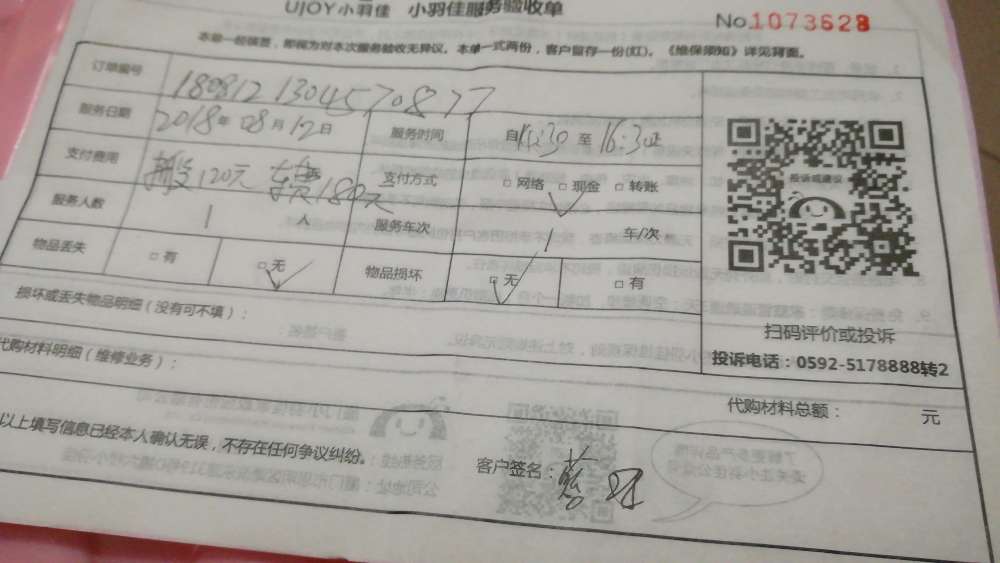 UJOY小羽佳 小羽佳服务验收单
No.1073628
本单一经签署，即视为对本次服务验收无异议。本单一式两份，客户留存一份(红)。《维保须知》详见背面。
订单编号 1808121304570877
服务日期 2018年08月12日 服务时间 自14:30至16:30止
支付费用 搬120元 180元 支付方式 □网络 □现金 □转账
服务人数 1人 服务车次 1车/次
物品丢失 □有 □无 物品损坏 □无 □有
损坏或丢失物品明细（没有可不填）：
代购材料明细（维修业务）：
投诉或建议
扫码评价或投诉
投诉电话：0592-5178888转2
代购材料总额： 元
以上填写信息已经本人确认无误，不存在任何争议纠纷。
客户签名：